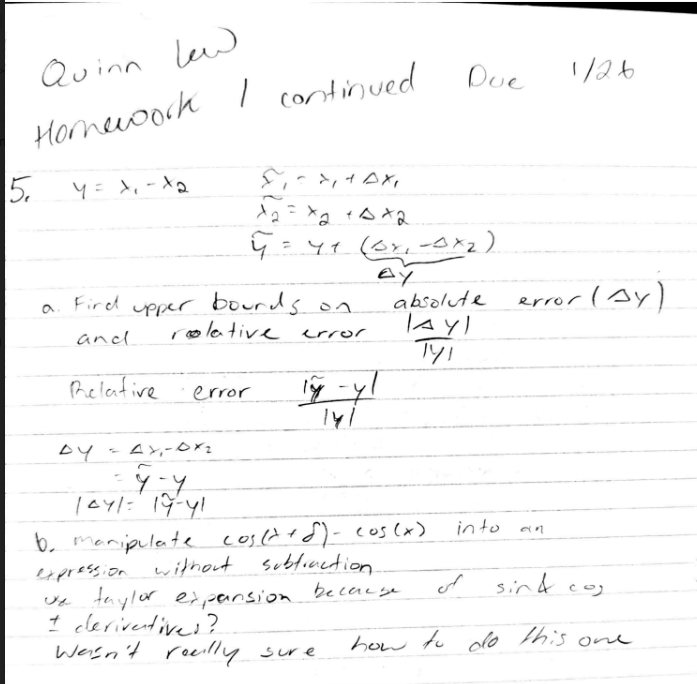 Quinn Lew
Homewoork 1 continued Due 1/26
5. y = x₁ - x₂ x̃₁ = x₁ + Δx₁
x̃₂ = x₂ + Δx₂
ỹ = y + (Δx₁ - Δx₂)
Δy
a. Find upper bounds on absolute error (Δy)
and relative error |Δy|/|y|
Relative error |ỹ - y|/|y|
Δy = Δx₁ - Δx₂
= ỹ - y
|Δy| = |ỹ - y|
b. manipulate cos(x + δ) - cos(x) into an
expression without subtraction
use taylor expansion because of sin & cos
± derivatives?
Wasn't really sure how to do this one